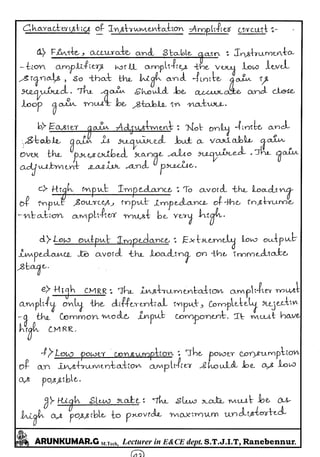 Characteristics of Instrumentation Amplifier circuit :-
a) Finite, accurate and Stable gain : Instrumenta
-tion amplifiers will amplifies the very low level
signals, so that the high and finite gain is
required. The gain should be accurate and close
loop gain must be stable in nature.
b) Easier gain Adjustment : Not only finite and
stable gain is required but a variable gain
over the prescribed range also required. The gain
adjustment easier and precise.
c) High Input Impedance : To avoid the loading
of input sources, input impedance of the instrume
-ntation amplifier must be very high.
d) Low output Impedance : Extremely low output
impedance to avoid the loading on the immediate
stage.
e) High CMRR : The instrumentation amplifier must
amplify only the differential input, completely rejectin
-g the common mode input component. It must have
high CMRR.
f) Low power consumption : The power consumption
of an instrumentation amplifier should be as low
as possible.
g) High Slew rate : The slew rate must be as
high as possible to provide maximum undistorted
ARUNKUMAR.G M.Tech, Lecturer in E&CE dept. S.T.J.I.T, Ranebennur.